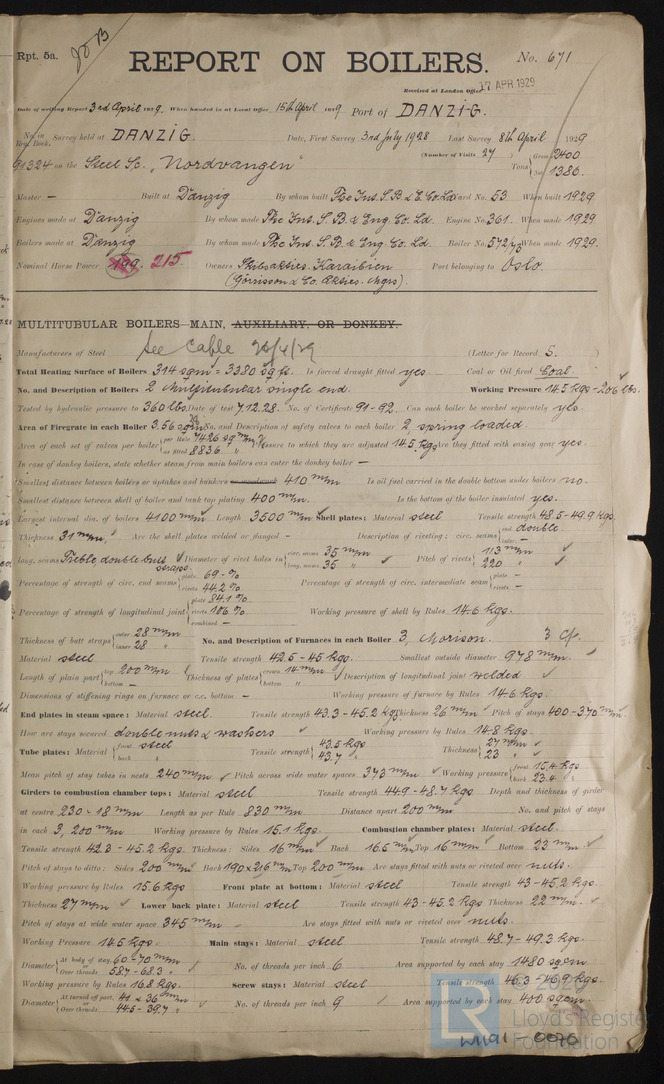 Rpt. 5a.
REPORT ON BOILERS.
No. 671
Received at London Office 17 APR 1929
Date of writing Report 3rd April 1929. When handed in at Local Office 15th April 1929 Port of DANZIG.
No. in Reg. Book. Survey held at DANZIG. Date, First Survey 3rd July 1928 Last Survey 8th April 1929
91324 on the Steel Sc. "Nordvangen" (Number of Visits 27) Tons Gross 2400 Net 1386.
Master – Built at Danzig By whom built The Int. S. B. & E. Co. Ld Yard No. 53 When built 1929
Engines made at Danzig By whom made The Int. S. B. & Eng. Co. Ld. Engine No. 361. When made 1929
Boilers made at Danzig By whom made The Int. S. B. & Eng. Co. Ld. Boiler No. 572/73 When made 1929.
Nominal Horse Power 199. 215 Owners Skibsakties. Karaibien Port belonging to Oslo.
(Görrisson & Co. Akties. Mgrs)
MULTITUBULAR BOILERS MAIN, AUXILIARY, OR DONKEY.
Manufacturers of Steel See Cable 26/4/29 (Letter for Record S.)
Total Heating Surface of Boilers 314 sqm = 3380 sq ft. Is forced draught fitted yes. Coal or Oil fired Coal.
No. and Description of Boilers 2 Multitubular single end. Working Pressure 14.5 kgs – 206 lbs.
Tested by hydraulic pressure to 360 lbs. Date of test 7.12.28. No. of Certificate 91-92. Can each boiler be worked separately yes.
Area of Firegrate in each Boiler 3,56 sqm. No. and Description of safety valves to each boiler 2, spring loaded.
Area of each set of valves per boiler per Rule 7426 sq mm as fitted 8836 " Pressure to which they are adjusted 14.5 kgs Are they fitted with easing gear yes.
In case of donkey boilers, state whether steam from main boilers can enter the donkey boiler –
Smallest distance between boilers or uptakes and bunkers or woodwork 410 mm Is oil fuel carried in the double bottom under boilers no.
Smallest distance between shell of boiler and tank top plating 400 mm. Is the bottom of the boiler insulated yes.
Largest internal dia. of boilers 4100 mm Length 3500 mm Shell plates: Material steel Tensile strength 48.5-49.9 kgs
Thickness 31 mm. Are the shell plates welded or flanged – Description of riveting: circ. seams end double inter. –
long. seams Treble, double butt straps Diameter of rivet holes in circ. seams 35 mm long. seams 35 " Pitch of rivets 113 mm 220 "
Percentage of strength of circ. end seams plate 69 -% rivets 44.2 % Percentage of strength of circ. intermediate seam plate – rivets –
Percentage of strength of longitudinal joint plate 84.1 % rivets 106 % combined – Working pressure of shell by Rules 14.6 kgs.
Thickness of butt straps outer 28 mm inner 28 " No. and Description of Furnaces in each Boiler 3, Morison. 3 Cf.
Material steel Tensile strength 42.5-45 kgs. Smallest outside diameter 978 mm.
Length of plain part top 200 mm bottom – Thickness of plates crown 14 mm bottom " Description of longitudinal joint welded
Dimensions of stiffening rings on furnace or c.c. bottom – Working pressure of furnace by Rules 14.6 kgs.
End plates in steam space: Material steel. Tensile strength 43.3-45.2 kgs Thickness 26 mm Pitch of stays 400-370 mm.
How are stays secured double nuts & washers Working pressure by Rules 14.8 kgs.
Tube plates: Material front steel back " Tensile strength 43.5 kgs 43.7 " Thickness 27 mm 23 "
Mean pitch of stay tubes in nests 240 mm Pitch across wide water spaces 373 mm Working pressure front 15.4 kgs back 23.4 "
Girders to combustion chamber tops: Material steel Tensile strength 44.9-48.7 kgs Depth and thickness of girder
at centre 230 – 18 mm Length as per Rule 830 mm Distance apart 200 mm No. and pitch of stays
in each 3, 200 mm Working pressure by Rules 15.1 kgs. Combustion chamber plates: Material steel.
Tensile strength 42.3-45.2 kgs. Thickness: Sides 16 mm Back 16.5 mm Top 16 mm Bottom 23 mm
Pitch of stays to ditto: Sides 200 mm Back 190x216 mm Top 200 mm. Are stays fitted with nuts or riveted over nuts.
Working pressure by Rules 15.6 kgs Front plate at bottom: Material steel Tensile strength 43-45.2 kgs.
Thickness 27 mm Lower back plate: Material steel Tensile strength 43-45.2 kgs Thickness 22 mm.
Pitch of stays at wide water space 345 mm Are stays fitted with nuts or riveted over nuts.
Working Pressure 14.5 kgs. Main stays: Material steel Tensile strength 48.7-49.3 kgs.
Diameter At body of stay, 60-70 mm Over threads 58.7-68.3 " No. of threads per inch 6 Area supported by each stay 1480 sqcm
Working pressure by Rules 16.8 kgs. Screw stays: Material steel Tensile strength 46.3-46.9 kgs
Diameter At turned off part, 41 & 36 mm or Over threads 44.5-39.7 " No. of threads per inch 9 Area supported by each stay 400 sqcm.
© 2020
LR
Lloyd's Register
Foundation
W1191 - 0076